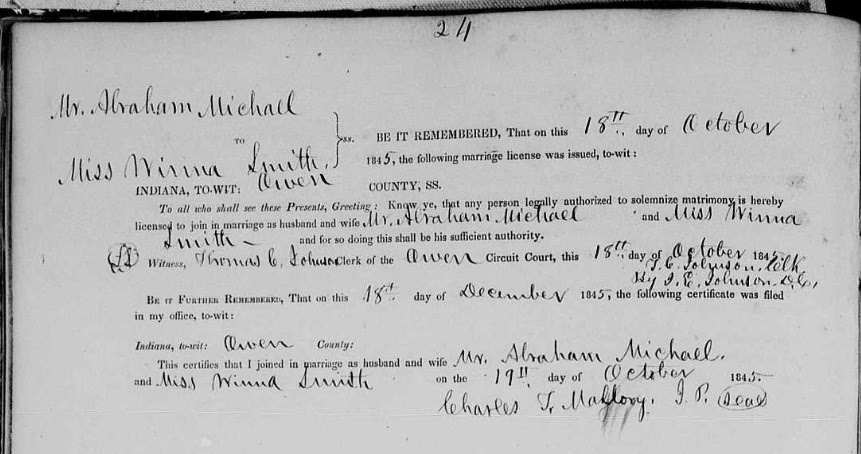 24
Mr. Abraham Michael
TO } ss. BE IT REMEMBERED, That on this 18th. day of October
Miss Winna Smith. 1845, the following marriage license was issued, to-wit:
INDIANA, TO-WIT: Owen COUNTY, SS.
To all who shall see these Presents, Greeting: Know ye, that any person legally authorized to solemnize matrimony, is hereby
licensed to join in marriage as husband and wife Mr. Abraham Michael and Miss Winna
Smith and for so doing this shall be his sufficient authority.
Witness, Thomas C. Johnson Clerk of the Owen Circuit Court, this 18th. day of October 1845.
T. C. Johnson, Clk
By J. E. Johnson D.C.,
BE IT FURTHER REMEMBERED, That on this 18th day of December 1845, the following certificate was filed
in my office, to-wit:
Indiana, to-wit: Owen County:
This certifies that I joined in marriage as husband and wife Mr. Abraham Michael.
and Miss Winna Smith on the 19th day of October 1845.
Charles T. Mallory. J. P. Seal